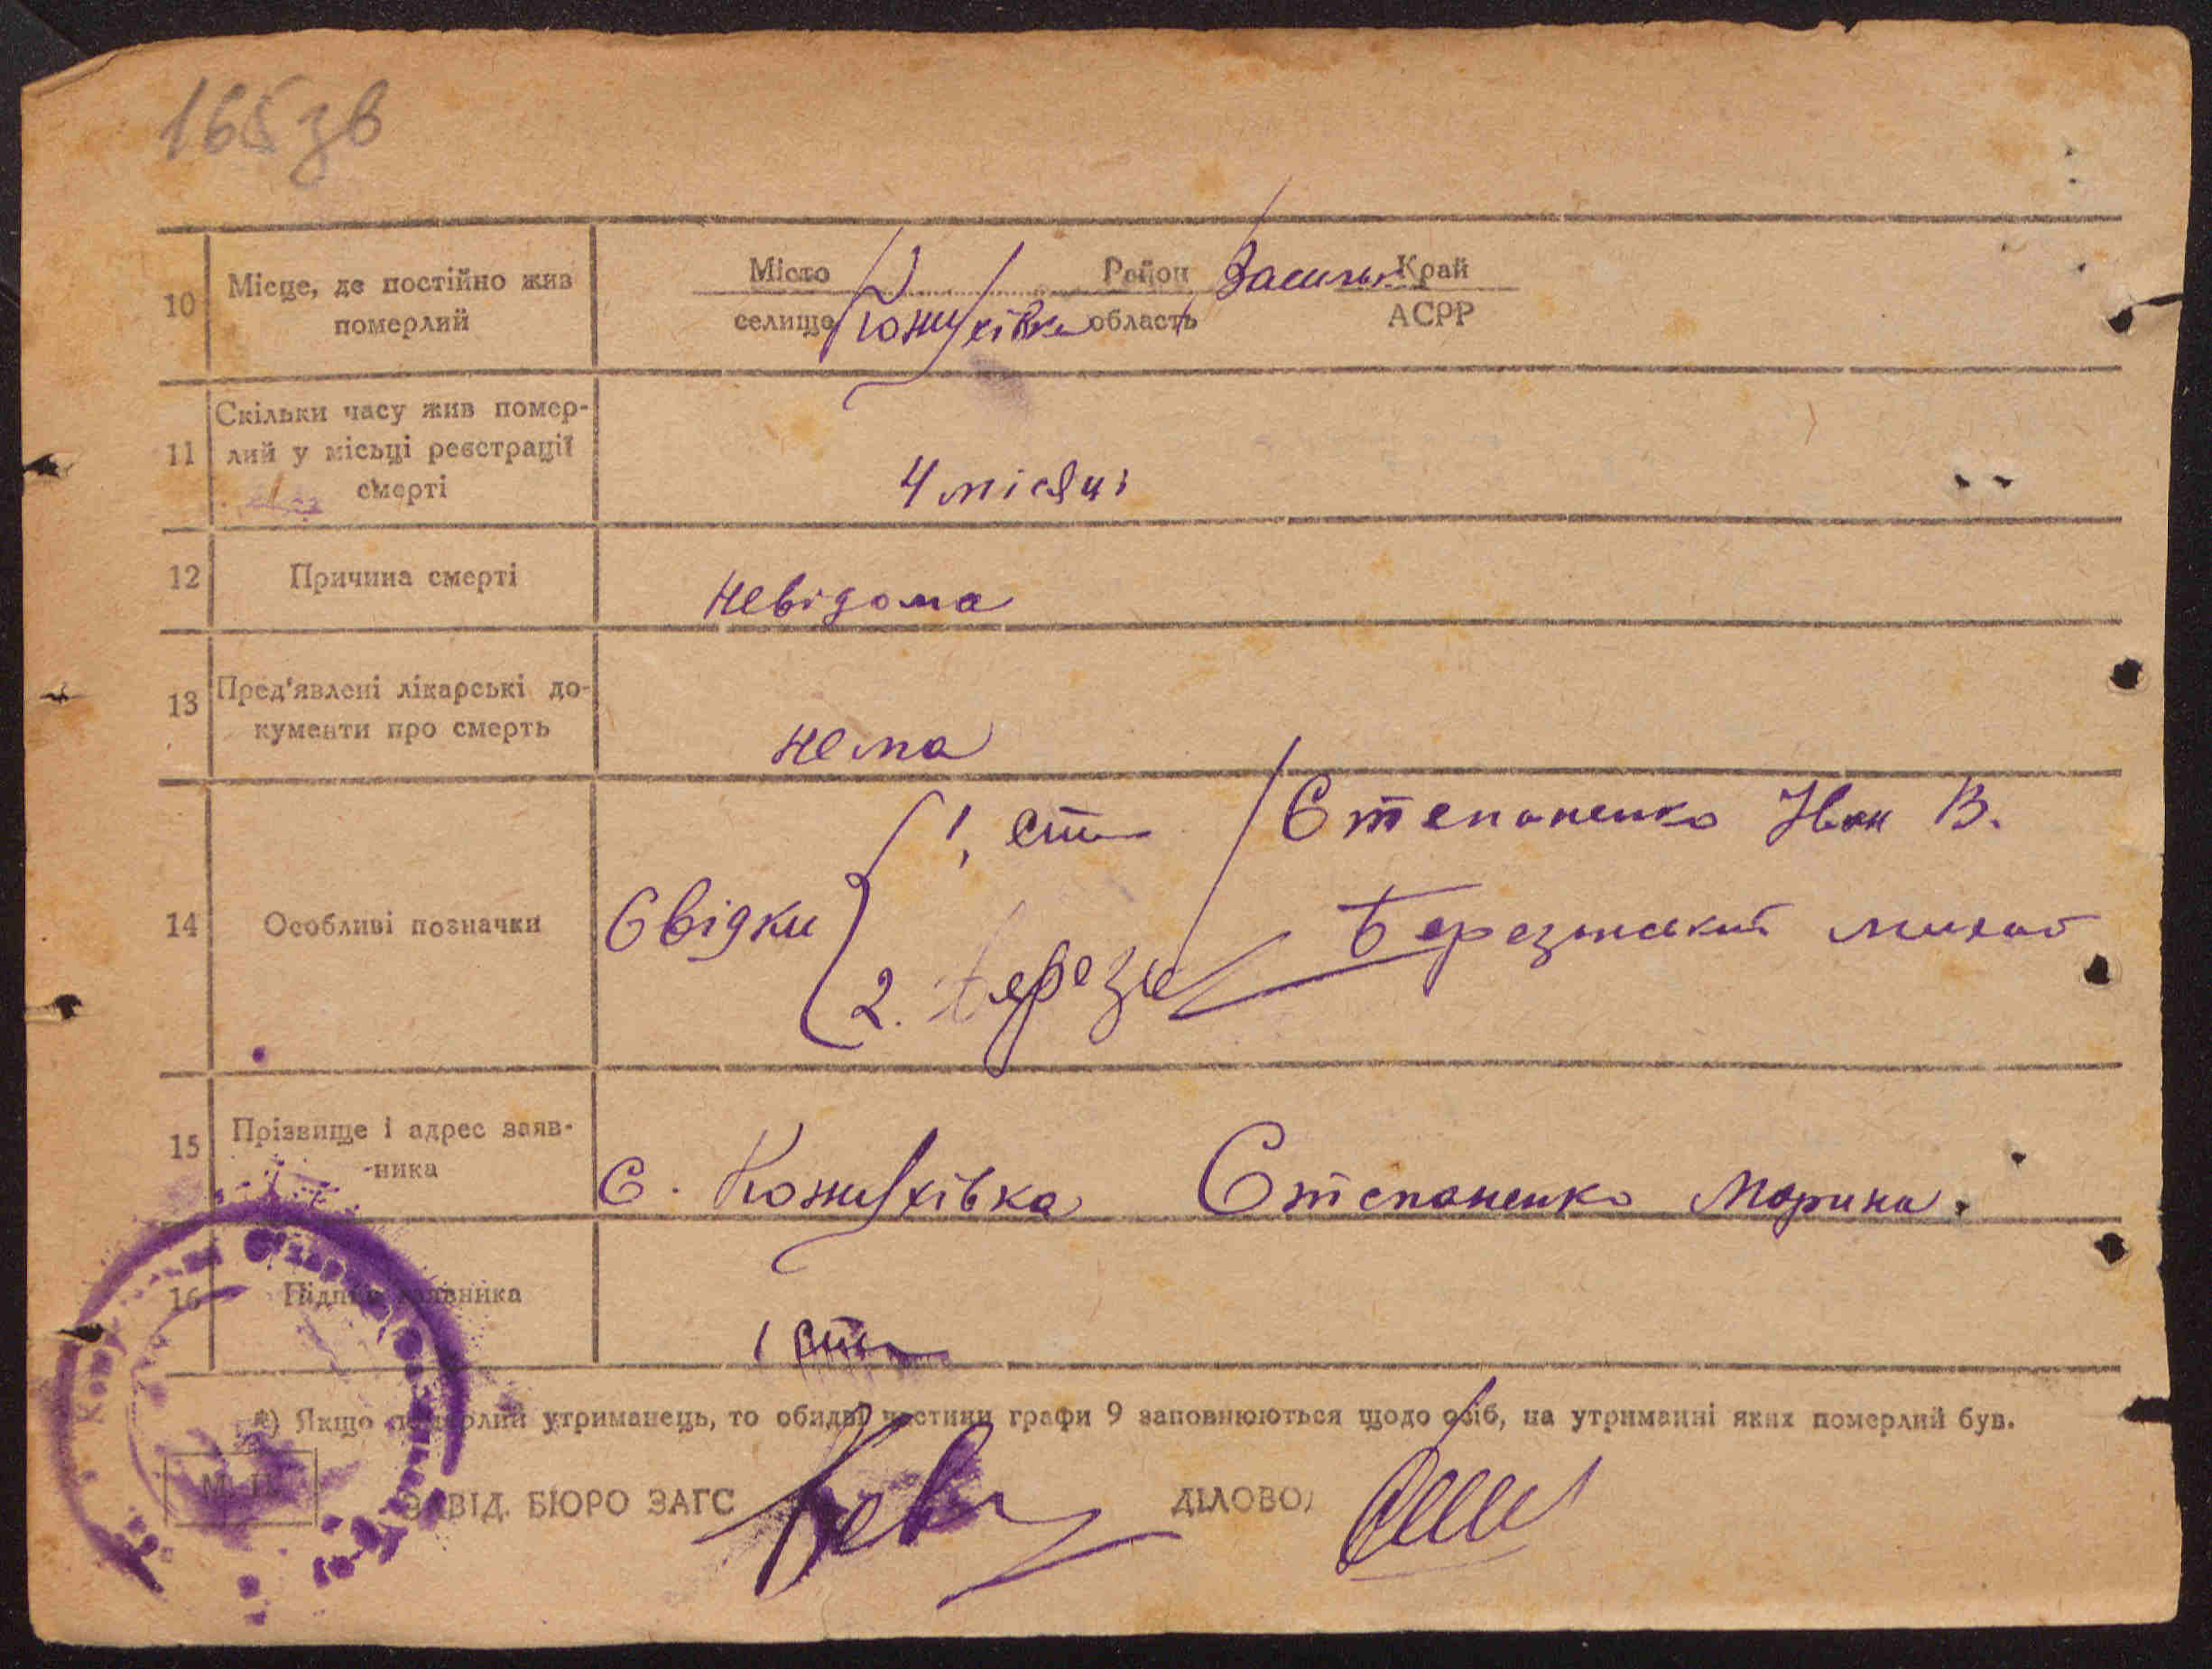 165 зв
10 Місце, де постійно жив Місто Район Васильк Край
померлий селище Кожухівка область АСРР
Скільки часу жив помер-
11 лий у місьці реєстрації
смерті 4 місяці
12 Причина смерті невідома
13 Пред'явлені лікарські до-
кументи про смерть нема
1, Степаненко Іван В.
14 Особливі позначки Свідки Березинський
2. Березин
15 Прізвище і адрес заяв-
ника С. Кожухівка Степаненко Марина.
16 Підпис заявника
*) Якщо померлий утриманець, то обидві частини графи 9 заповнюються щодо осіб, на утриманні яких померлий був.
М. П.
ЗАВІД. БЮРО ЗАГС ДІЛОВОД